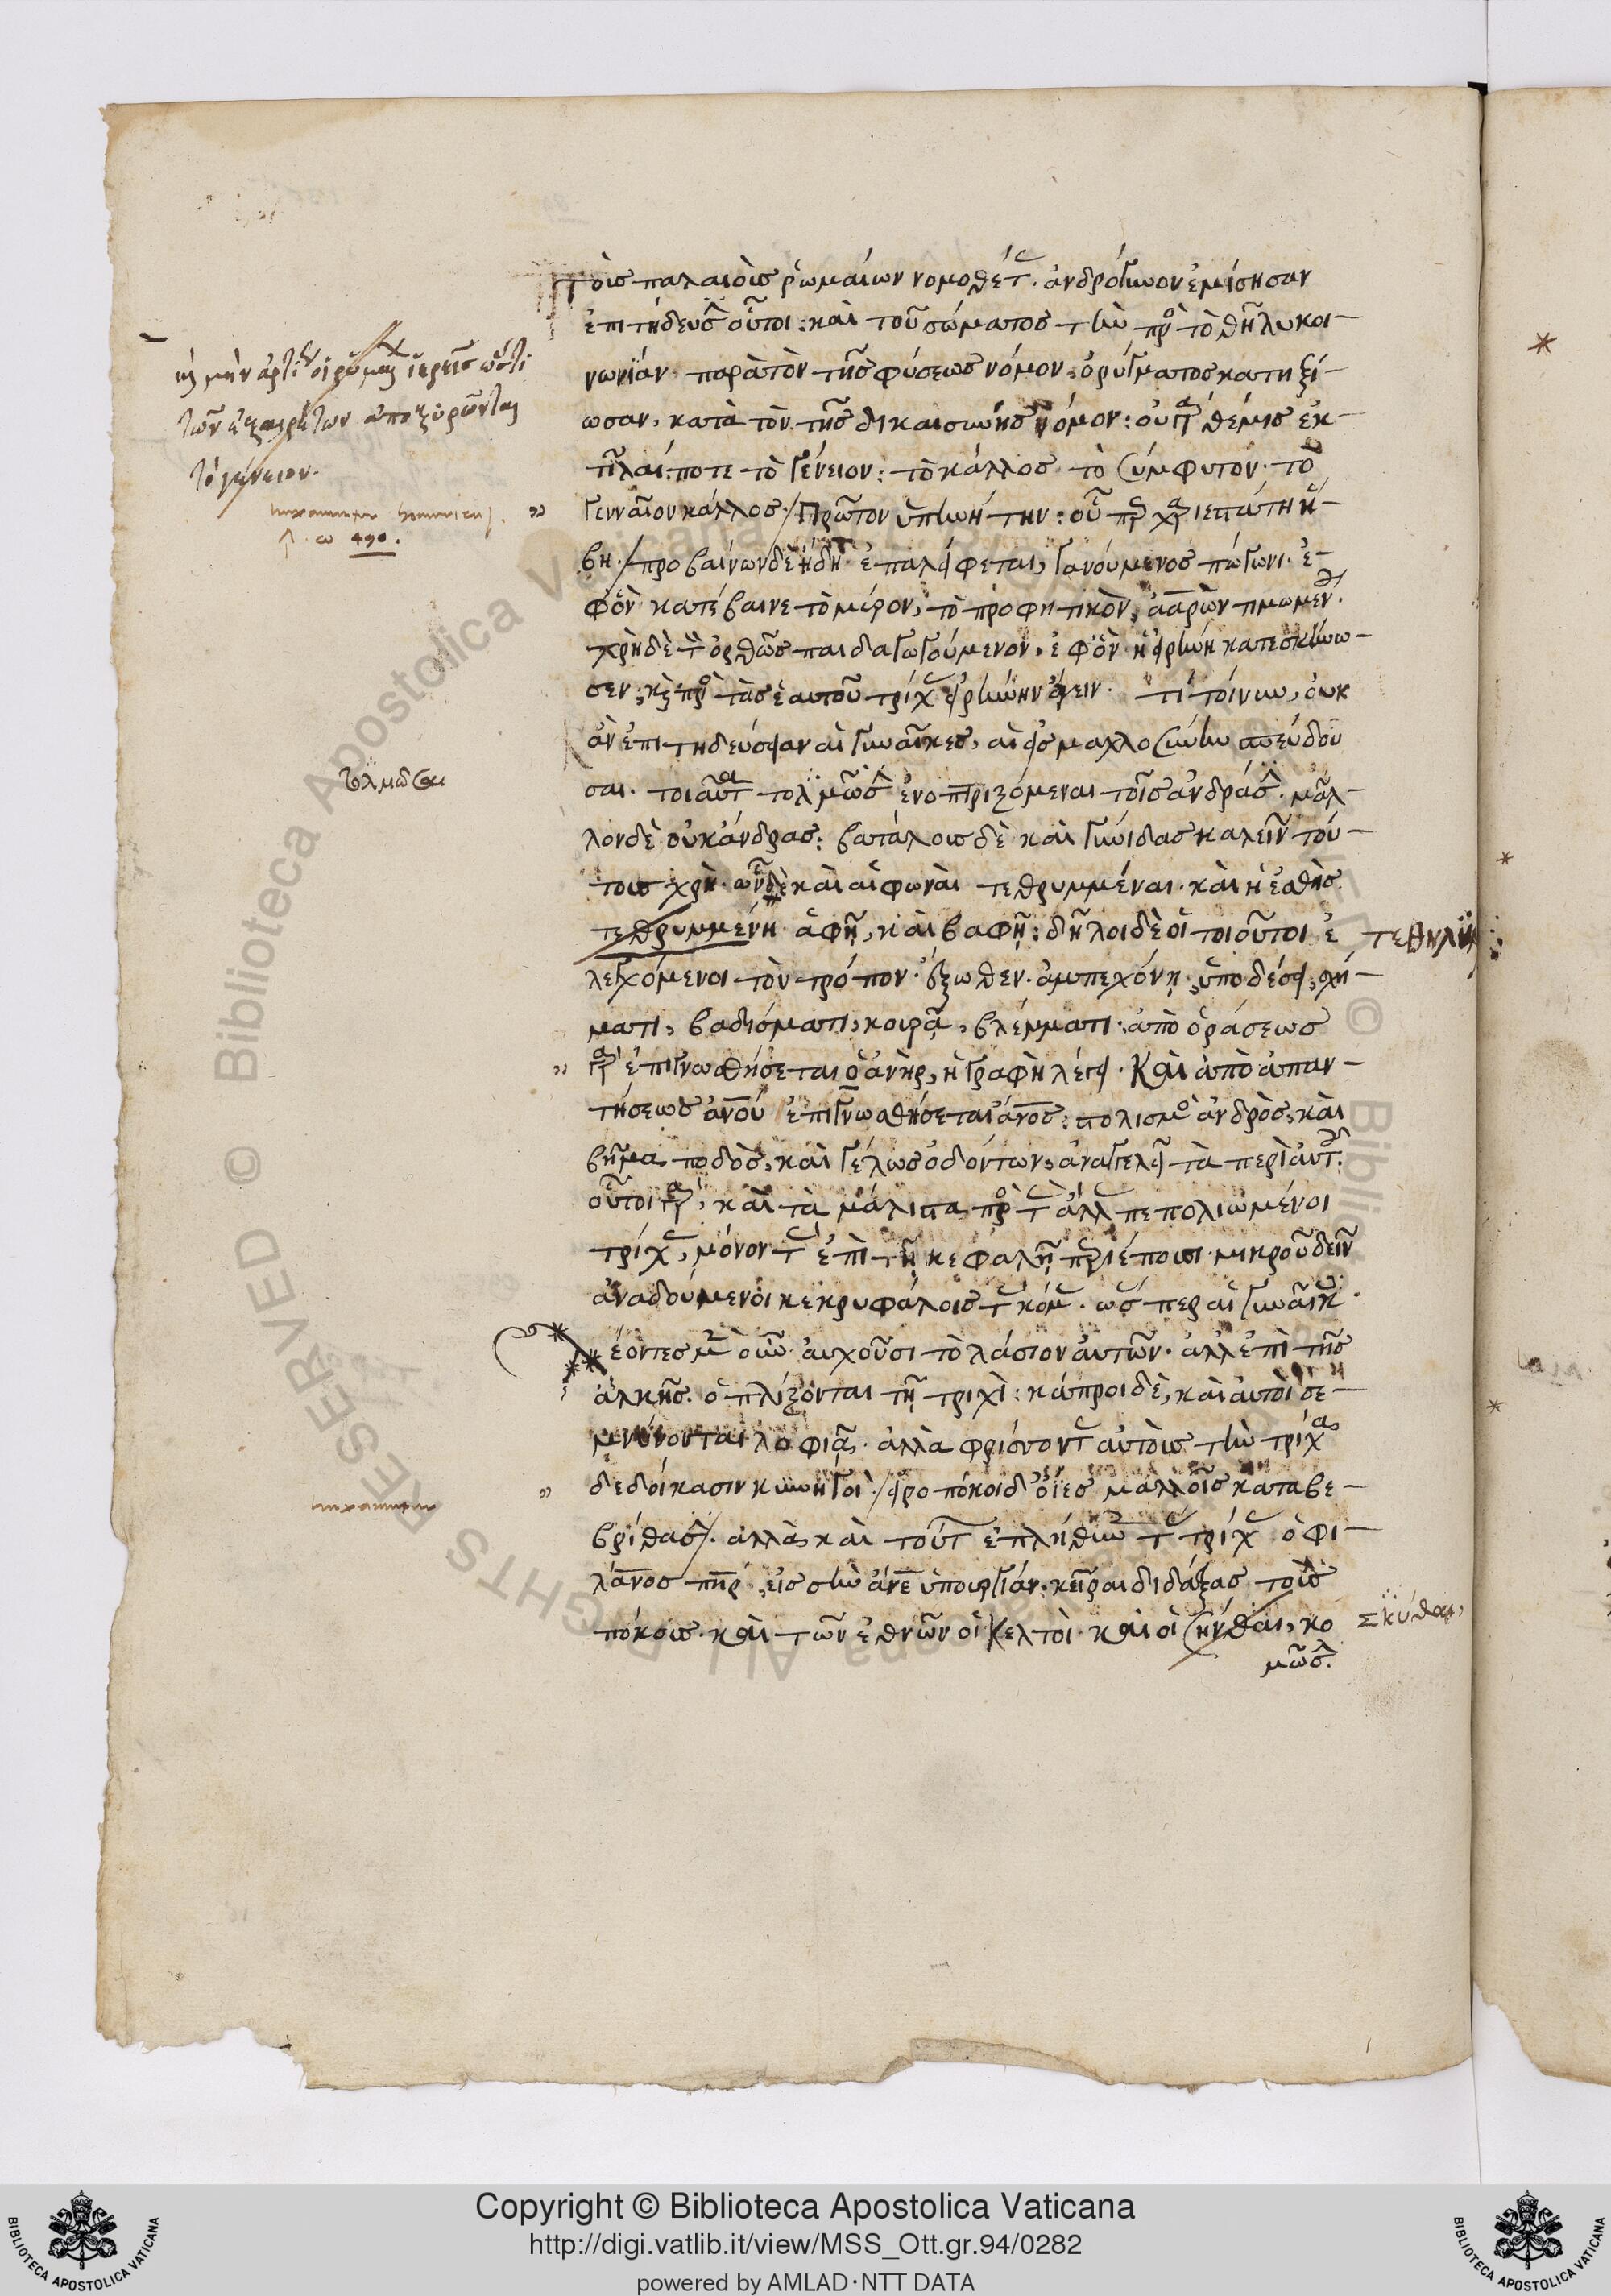 τοῖς παλαιοῖς ῥωμαίων νομοθέτ. ἀνδρόγυνον ἐμίσησαν
ἐπιτήδευσ οὗτοι: καὶ τοῦ σώματος τὴν πρὸ τὸ θῆλυ κοι-
νωνίαν παρὰ τὸν τῆς φύσεως νόμον, ὀρύγματος κατηξί-
ωσαν, κατὰ τὸν τῆς δικαιοσύνης νόμον: οὐ γὰρ θέμις ἐκ-
τῖλαί ποτε τὸ γένειον: τὸ κάλλος τὸ σύμφυτον. τὸ
γενναῖον κάλλος. πρῶτον ὑπηνήτην: οὗ περ χαριεστάτη ἥ-
βη. προβαίνων δὲ ἤδη ἐπαλείφεται, γανούμενος πώγωνι. ἐ-
φ' ὃν κατέβαινε τὸ μύρον, τὸ προφητικὸν, ἀαρὼν τιμωμεν.
χρὴ δὲ τὸν ὀρθῶς παιδαγωγούμενον, ἐφ' ὃν ἡ εἰρήνη κατεσκήνω-
σεν, καὶ πρὸ τὰς ἑαυτοῦ τρίχ εἰρήνην ἄγειν. τί τοίνυν, οὐκ
ἂν ἐπιτηδεύσειαν αἱ γυναῖκες, αἱ εἰς μαχλοσύνην σπεύδου
σαι. τοιαῦτα τολμῶσ ἐνοπτριζόμεναι τοῖς ἀνδράσ. μᾶλ-
λον δὲ οὐκ ἄνδρας: βατάλοις δὲ καὶ γύνιδας καλεῖν τού-
τοις χρή. ὧν δὲ καὶ αἱ φωναὶ τεθρυμμέναι. καὶ ἡ ἐσθὴς
τεθρυμμένη ἁφῇ, καὶ βαφῇ: δῆλοι δὲ οἱ τοιοῦτοι ἐ
λεγχόμενοι τὸν τρόπον. ἔξωθεν. ἀμπεχόνῃ, ὑποδέσει, σχή-
ματι, βαδίσματι, κουρᾷ, βλέμματι. ἀπὸ ὁράσεως
γὰρ ἐπιγνωσθήσεται ὁ ἀνήρ, ἡ γραφὴ λέγει. καὶ ἀπὸ ἀπαν-
τήσεως ἀνου ἐπιγνωσθήσεται ἀνος: στολισμὸ ἀνδρὸς, καὶ
βῆμα ποδὸς, καὶ γέλως ὀδόντων, ἀναγγελεῖ τὰ περὶ αὐτ.
οὗτοι γὰρ, καὶ τὰ μάλιστα πρὸ τ ἄλλ πεπολιωμένοι
τρίχ, μόνον τ ἐπὶ τῇ κεφαλῇ περιέπουσι. μικροῦ δεῖν
ἀναδούμενοι κεκρυφάλοις τ κόμ. ὥσπερ αἱ γυναῖκ.
λέοντες μὲν οὖν αὐχοῦσι τὸ λάσιον αὐτῶν. ἀλλ' ἐπὶ τῆς
ἀλκῆς. ὁπλίζονται τῇ τριχί: κάπροι δὲ, καὶ αὐτοὶ σε-
μνύνονται λοφιᾷ. ἀλλὰ φρίσσοντ αὐτοῖς τὴν τρίχα
δεδοίκασιν κυνηγοί. εἰροπόκοι δ' ὄιες μαλλοῖς καταβε-
βρίθασ. ἀλλὰ καὶ τούτ ἐπλήθυν τ τρίχ ὁ φι-
λάνος πηρ, εἰς σὴν ἄνε ὑπουργίαν. κεῖραι διδάξας τοὺς
πόκους. καὶ τῶν ἐθνῶν οἱ κελτοὶ καὶ οἱ σκύθαι, κο
μῶσ.
καὶ μὴν ἄρτι οἱ ῥωμαί ἱερεῖς
τῶν ἐξαιρέτων ἀποξυρῶνται
τὸ γένειον.
490.
τολμῶσαι
τεθηλυ
Σκύθαι,
Copyright © Biblioteca Apostolica Vaticana
http://digi.vatlib.it/view/MSS_Ott.gr.94/0282
powered by AMLAD·NTT DATA
BIBLIOTECA APOSTOLICA VATICANA
BIBLIOTECA APOSTOLICA VATICANA